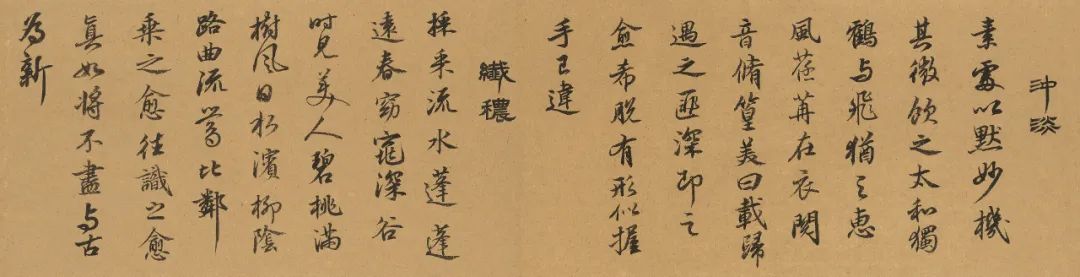 沖淡
素處以默妙機
其微飲之太和獨
鶴与飛猶之惠
風荏苒在衣閱
音脩篁美曰載歸
遇之匪深即之
愈希脫有形似握
手已違
纖穠
採采流水蓬蓬
遠春窈窕深谷
時見美人碧桃滿
樹風日水濱柳陰
路曲流鶯比鄰
乘之愈往識之愈
真如將不盡与古
為新